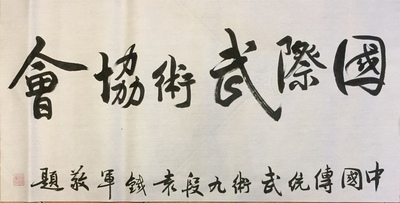 國際武術協會
中國傳統武術九段袁鐵軍敬題